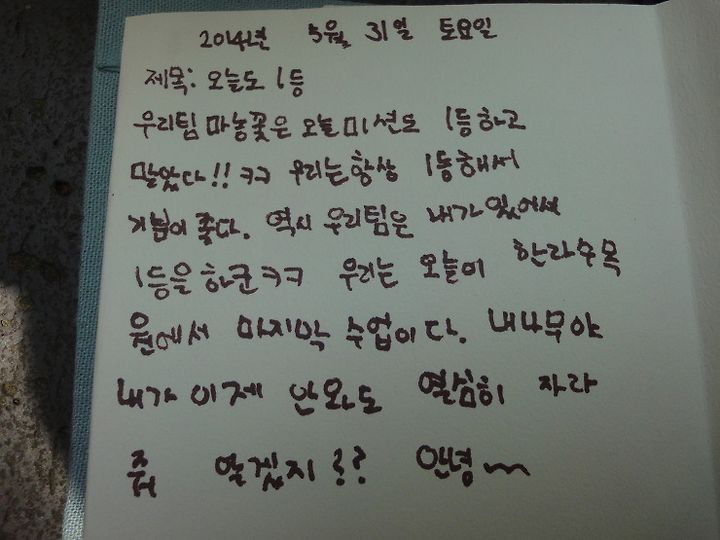 2014년 5월 31일 토요일
제목: 오늘도 1등
우리팀 마농꽃은 오늘 미션도 1등하고
말았다!! ㅋㅋ 우리는 항상 1등해서
기분이 좋다. 역시 우리팀은 내가 있어서
1등을 하군ㅋㅋ 우리는 오늘이 한라수목
원에서 마지막 수업이다. 내나무야
내가 이제 안와도 열심히 자라
줘 알겠지?? 안녕~